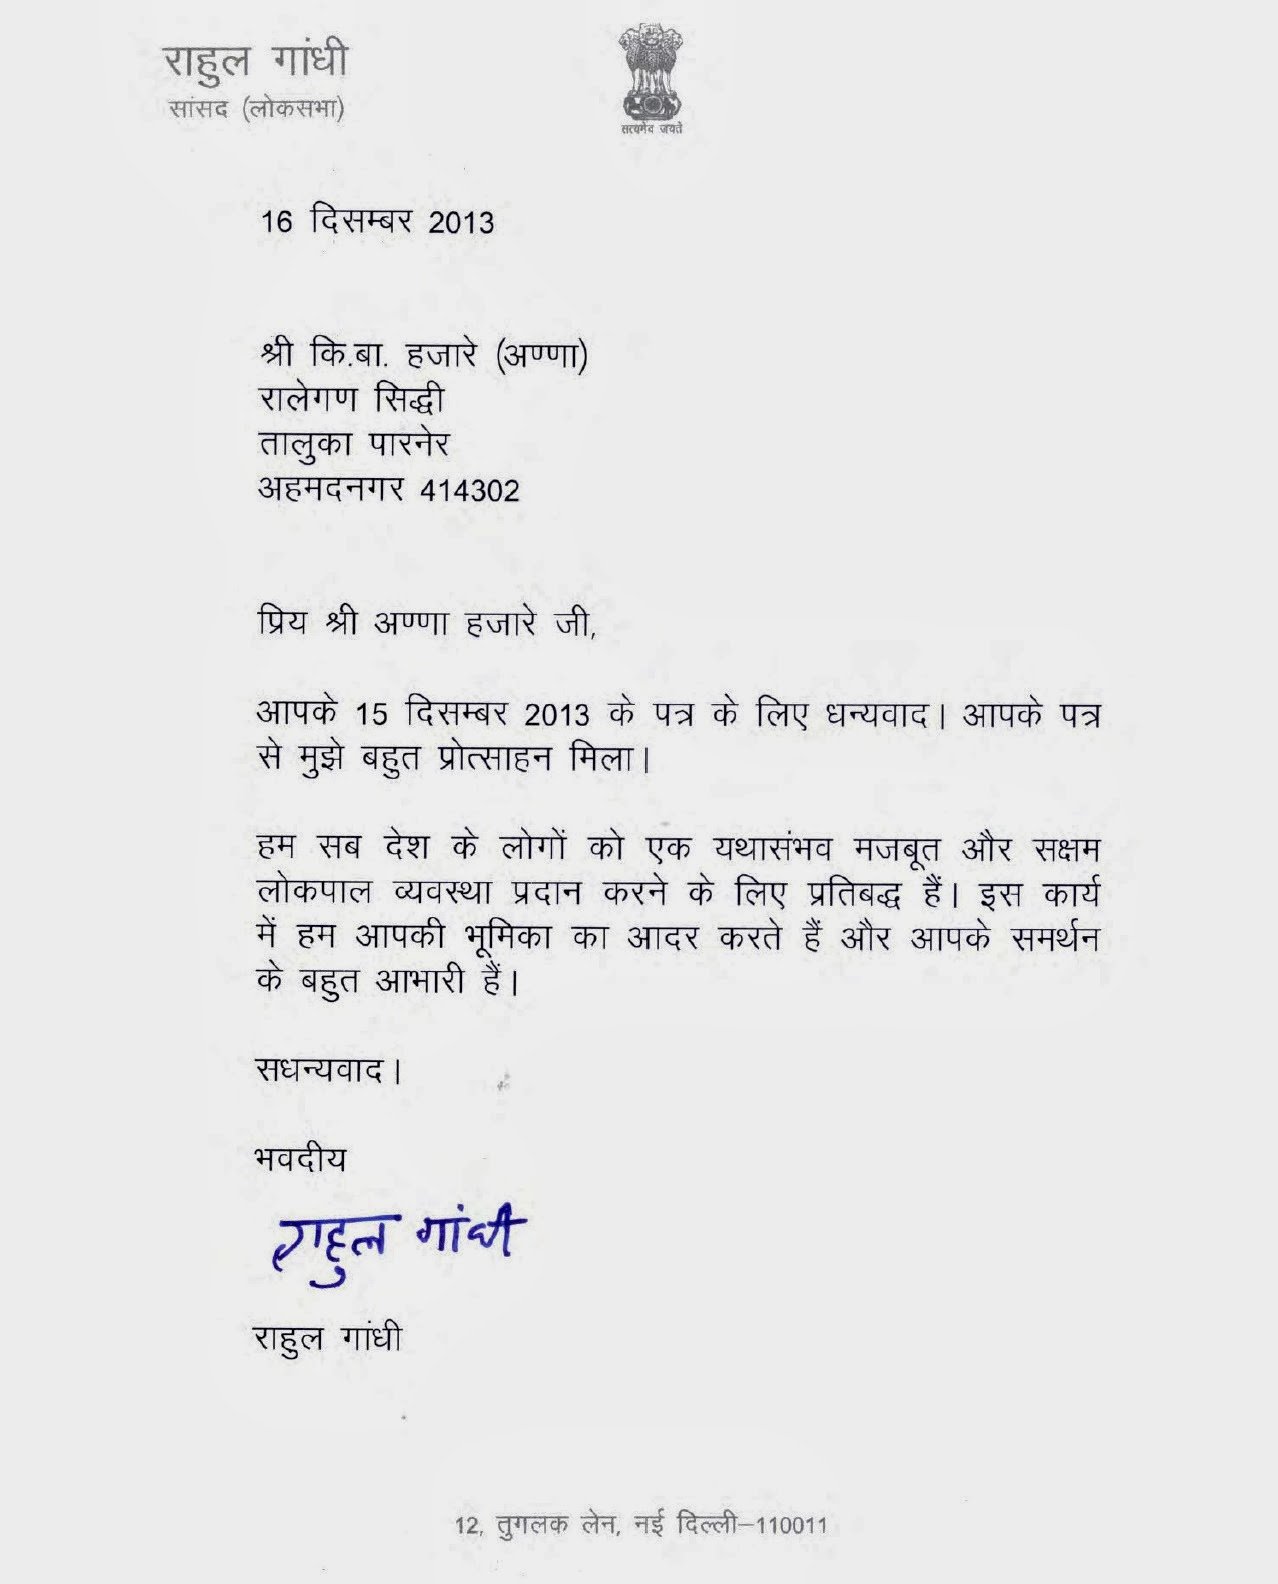 राहुल गांधी
सांसद (लोकसभा)
सत्यमेव जयते
16 दिसम्बर 2013
श्री कि.बा. हजारे (अण्णा)
रालेगण सिद्धी
तालुका पारनेर
अहमदनगर 414302
प्रिय श्री अण्णा हजारे जी,
आपके 15 दिसम्बर 2013 के पत्र के लिए धन्यवाद। आपके पत्र
से मुझे बहुत प्रोत्साहन मिला।
हम सब देश के लोगों को एक यथासंभव मजबूत और सक्षम
लोकपाल व्यवस्था प्रदान करने के लिए प्रतिबद्ध हैं। इस कार्य
में हम आपकी भूमिका का आदर करते हैं और आपके समर्थन
के बहुत आभारी हैं।
सधन्यवाद।
भवदीय
राहुल गांधी
राहुल गांधी
12, तुगलक लेन, नई दिल्ली–110011